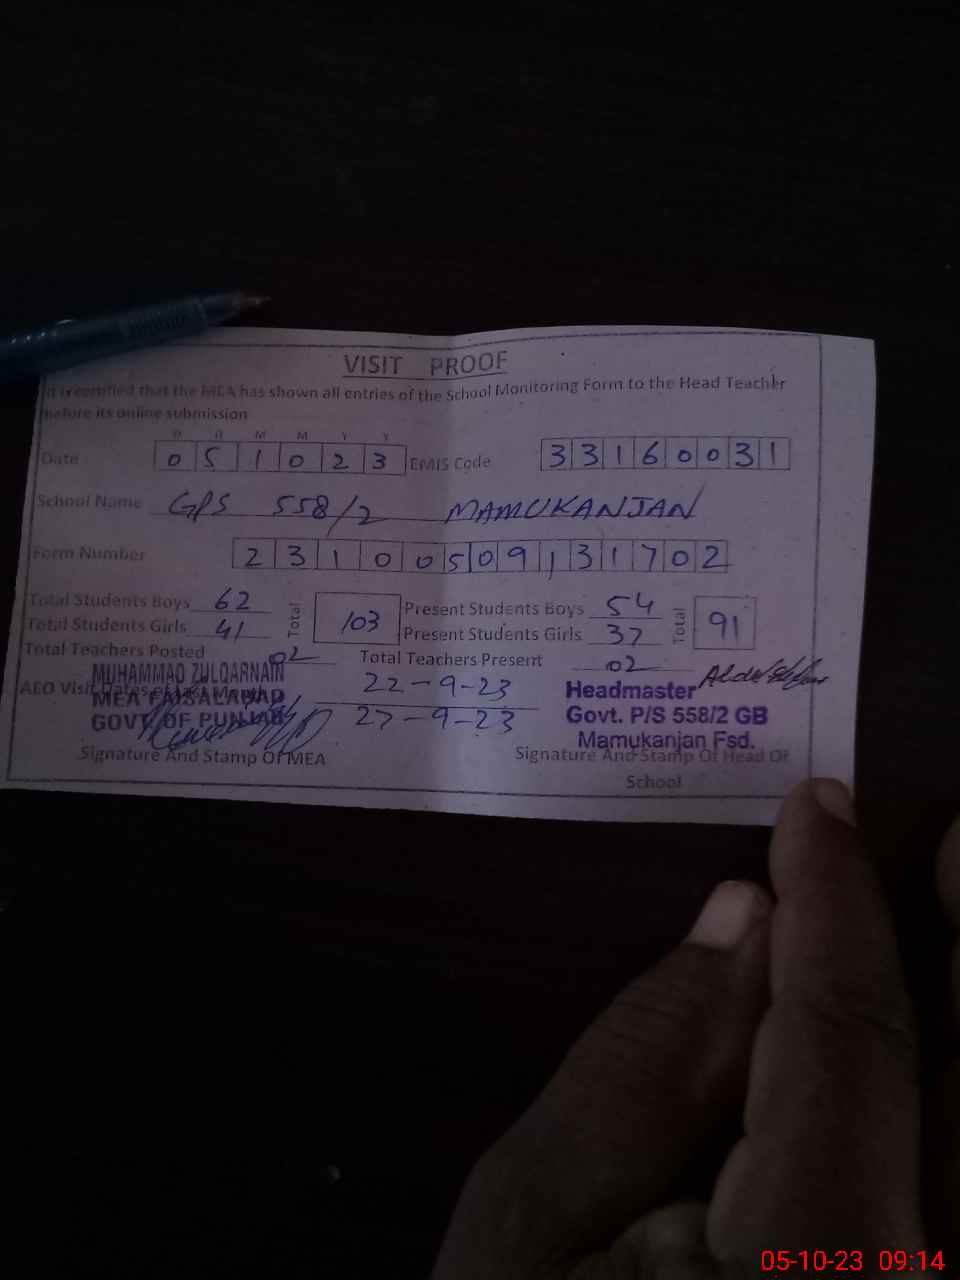 VISIT PROOF
It is certified that the MEA has shown all entries of the School Monitoring Form to the Head Teacher
before its online submission
D D M M Y Y
Date 0 5 1 0 2 3 EMIS Code 3 3 1 6 0 0 3 1
School Name GPS 558/2 MAMUKANJAN
Form Number 2 3 1 0 0 5 0 9 1 3 1 7 0 2
Total Students Boys 62 Total 103 Present Students Boys 54 Total 91
Total Students Girls 41 Present Students Girls 37
Total Teachers Posted 02 Total Teachers Present 02
MUHAMMAD ZULQARNAIN
AEO Visit Dates of Last Month 22-9-23
MEA FAISALABAD
GOVT OF PUNJAB
27-9-23
Headmaster
Govt. P/S 558/2 GB
Mamukanjan Fsd.
Signature And Stamp Of MEA
Signature And Stamp Of Head Of
School
05-10-23 09:14